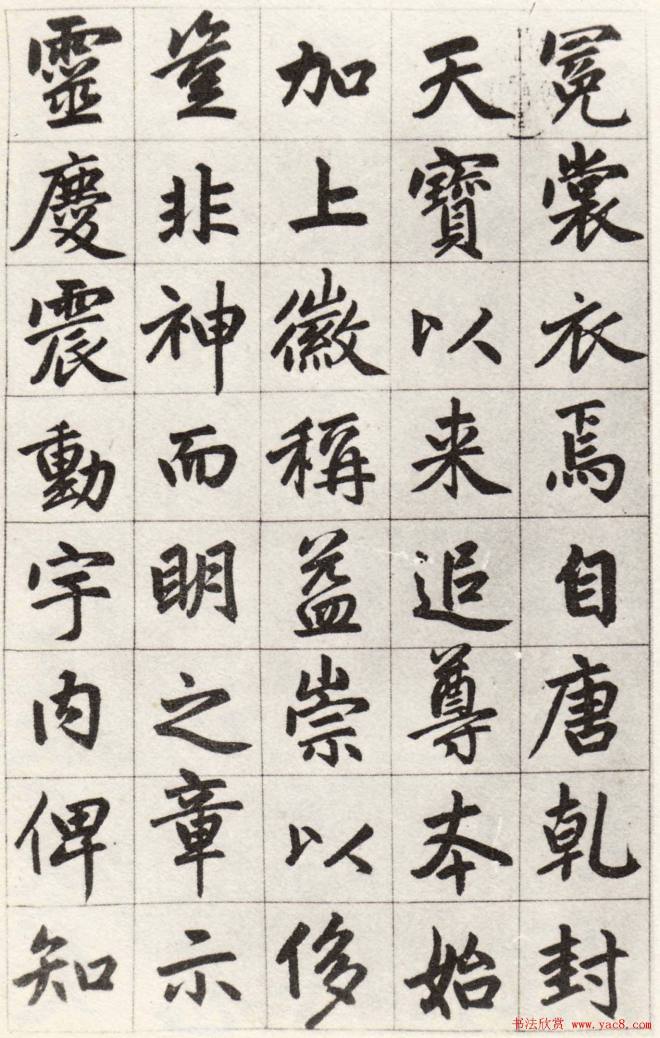 冕裳衣焉自唐乹封
天寶以来追尊本始
加上徽稱益崇以侈
豈非神而明之章示
靈慶震動宇内俾知
书法欣赏 www.yac8.com